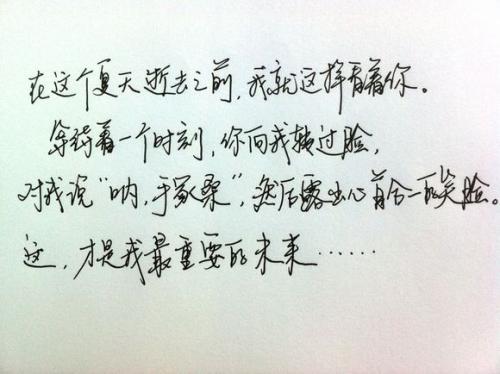 在这个夏天逝去之前,我就这样看着你。
等待着一个时刻,你向我转过脸,
对我说“呐,手冢桑”,然后露出心有合一的笑脸。
这,才是我最重要的未来……